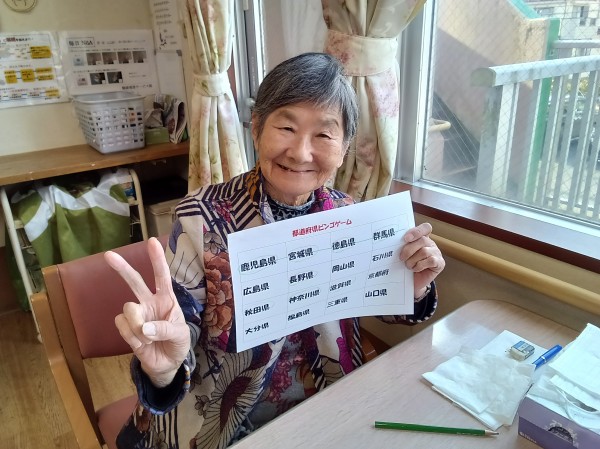 都道府県ビンゴゲーム
鹿児島県 宮城県 徳島県 群馬県
広島県 長野県 岡山県 石川県
秋田県 神奈川県 滋賀県 京都府
大分県 福島県 三重県 山口県